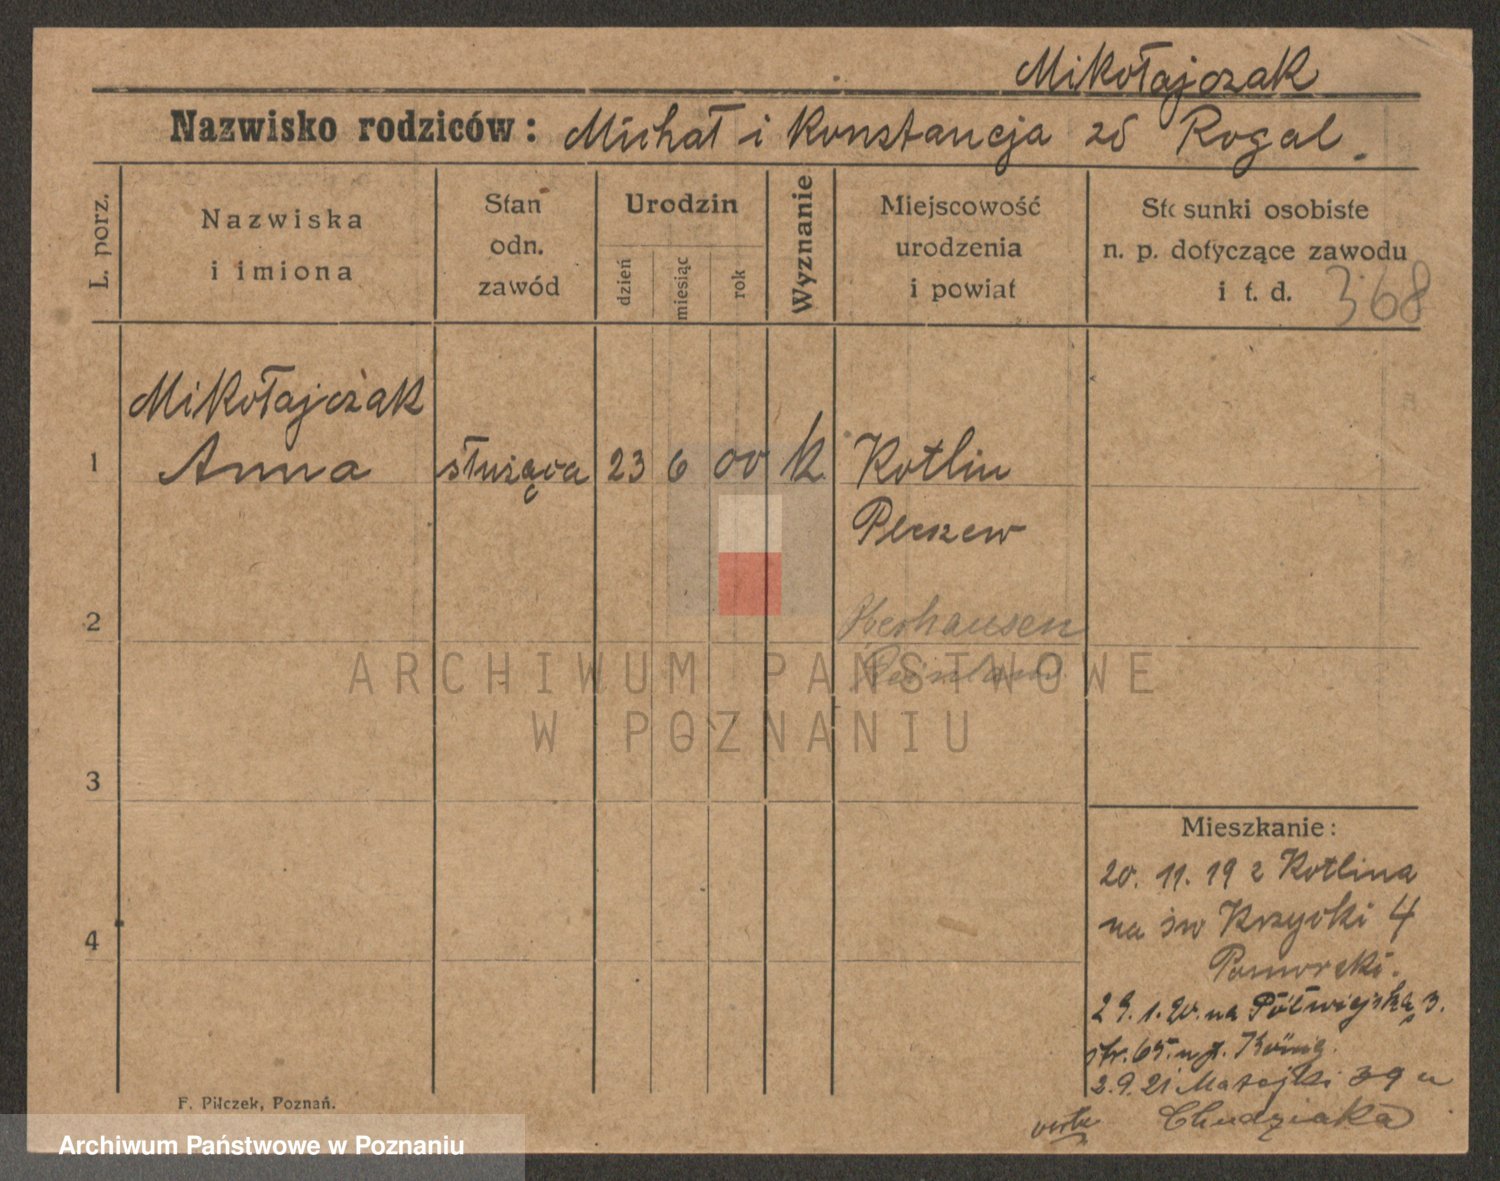 Mikołajczak
Nazwisko rodziców: Michał i Konstancja zd Rogal.
L. porz.
Nazwiska
i imiona
Stan
odn.
zawód
Urodzin
dzień
miesiąc
rok
Wyznanie
Miejscowość
urodzenia
i powiat
Stosunki osobiste
n. p. dotyczące zawodu
i t. d.
368
Mikołajczak
1 Anna służąca 23 6 00 k Kotlin
Pleszew
2 Oberhausen
Reinland
ARCHIWUM PAŃSTWOWE
W POZNANIU
3
Mieszkanie:
20. 11. 19 z Kotlina
4
na św 4
Pomorski.
29. 1. 20. na Półwiejską 3.
str. 65. König.
2.9.21 Matejki 39 u
verte Chudziaka
F. Pilczek, Poznań.
Archiwum Państwowe w Poznaniu